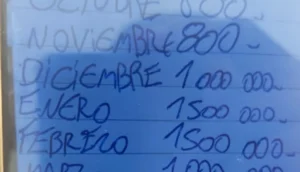 OCTUBRE 800.
NOVIEMBRE 800.
DICIEMBRE 1.000 000.
ENERO 1500 000.
FEBRERO 1500 000.
1.000 000.